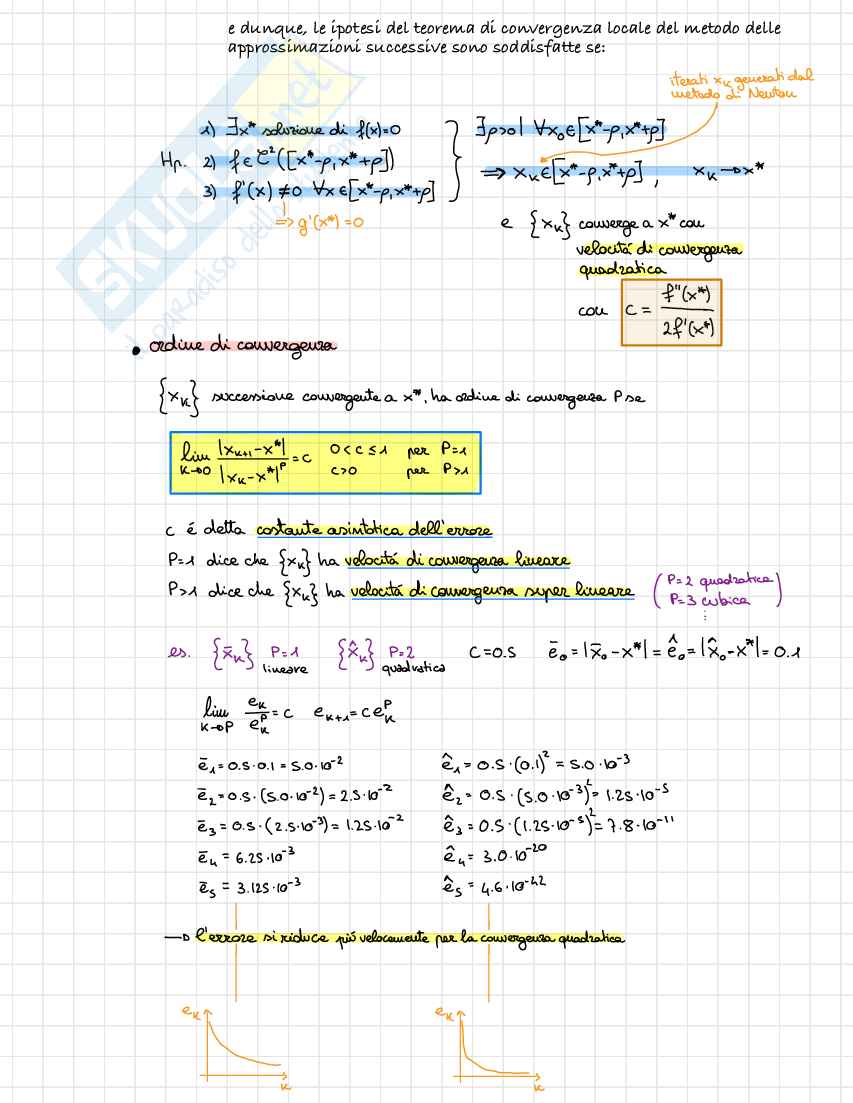 e dunque, le ipotesi del teorema di convergenza locale del metodo delle
approssimazioni successive sono soddisfatte se:
iterati xₖ generati dal
metodo di Newton
Hp.
1) ∃x* soluzione di f(x)=0
2) f ∈ C²([x*-ρ,x*+ρ])
3) f'(x) ≠0 ∀x∈[x*-ρ,x*+ρ]
⇒ g'(x*)=0
∃ρ>0| ∀x₀∈[x*-ρ,x*+ρ]
⇒ xₖ∈[x*-ρ,x*+ρ], xₖ→x*
e {xₖ} converge a x* con
velocitá di convergenza
quadratica
con c = f''(x*) / 2f'(x*)
• ordine di convergenza
{xₖ} successione convergente a x*, ha ordine di convergenza P se
lim k→0 |xₖ₊₁-x*| / |xₖ-x*|ᴾ = c 0<c≤1 per P=1
c>0 per P>1
c é detta costante asintotica dell'errore
P=1 dice che {xₖ} ha velocitá di convergenza lineare
P>1 dice che {xₖ} ha velocitá di convergenza super lineare (P=2 quadratica
P=3 cubica
⋮)
es. {x̄ₖ} P=1 lineare {x̂ₖ} P=2 quadratica C=0.5 ē₀=|x̄₀-x*|=ê₀=|x̂₀-x*|=0.1
lim k→P eₖ / eₖᴾ = c eₖ₊₁=c eₖᴾ
ē₁=0.5·0.1=5.0·10⁻²
ē₂=0.5·(5.0·10⁻²)=2.5·10⁻²
ē₃=0.5·(2.5·10⁻³)=1.25·10⁻²
ē₄=6.25·10⁻³
ē₅=3.125·10⁻³
ê₁=0.5·(0.1)²=5.0·10⁻³
ê₂=0.5·(5.0·10⁻³)²=1.25·10⁻⁵
ê₃=0.5·(1.25·10⁻⁵)²=7.8·10⁻¹¹
ê₄=3.0·10⁻²⁰
ê₅=4.6·10⁻⁴²
→ l'errore si riduce piú velocemente per la convergenza quadratica
eₖ
k
eₖ
k